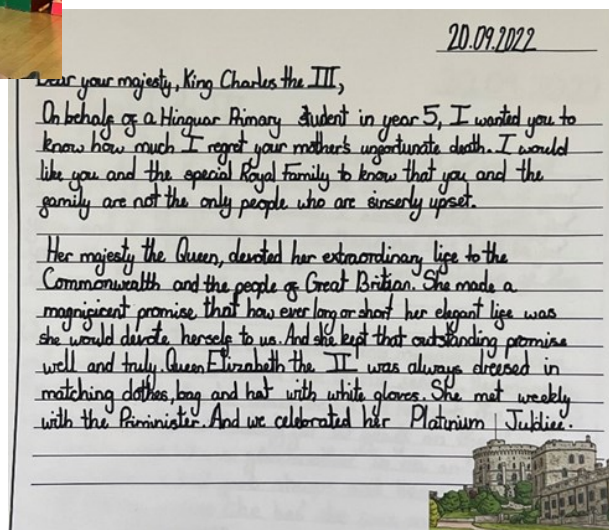 20.09.2022
Dear your majesty, King Charles the III,
On behalf of a Hinguar Primary student in year 5, I wanted you to
know how much I regret your mother's unfortunate death. I would
like you and the special Royal Family to know that you and the
family are not the only people who are sinserly upset.
Her majesty the Queen, devoted her extraordinary life to the
Commonwealth and the people of Great Britian. She made a
magnificent promise that how ever long or short her elegant life was
she would devote herself to us. And she kept that outstanding promise
well and truly. Queen Elizabeth the II was always dreesed in
matching clothes, bag and hat with white gloves. She met weekly
with the Priminister. And we celebrated her Platunium Jubliee.